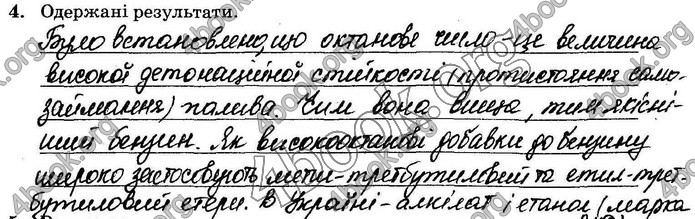 4. Одержані результати.
Було встановлено, що октанове число – це величина
високої детонаційної стійкості (протистояння само-
займання) палива. Чим вона вища, тим якісні-
ший бензин. Як високооктанові добавки до бензину
широко застосовують метил-третбутиловий та етил-трет-
бутиловий етери. В Україні – алкілат і етанол (марка